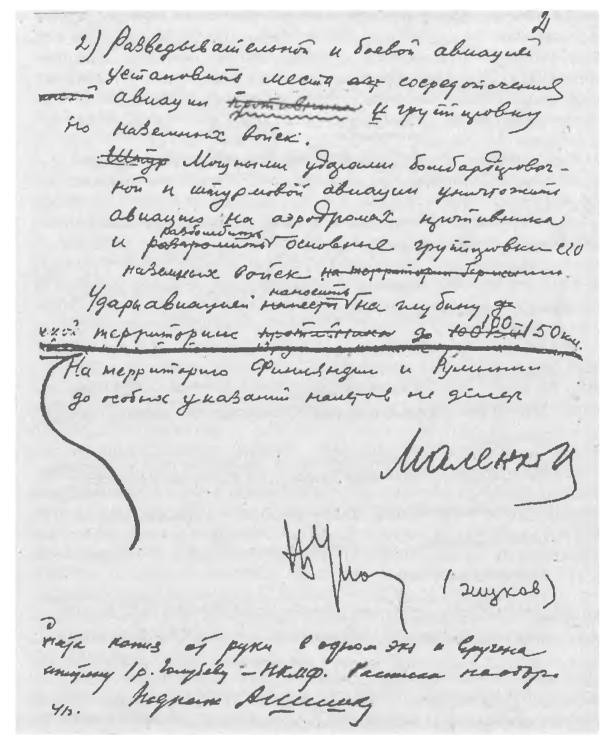 2
2) Разведывательной и боевой авиацией
установить места сосредоточения
авиации противника и группировку
но наземных войск.
Штур Мощными ударами бомбардировоч-
ной и штурмовой авиации уничтожить
авиацию на аэродромах противника
разбомбить
и основные группировки его
наземных войск на территории Германии.
наносить
Удары авиацией нанести на глубину до
ской территории противника до 100 150 км.
На территорию Финляндии и Румынии
до особых указаний налетов не делать
Маленков
(Жуков)
копия от руки в одном экз и вручена
Голубеву – НКМФ. Расписка на обор.